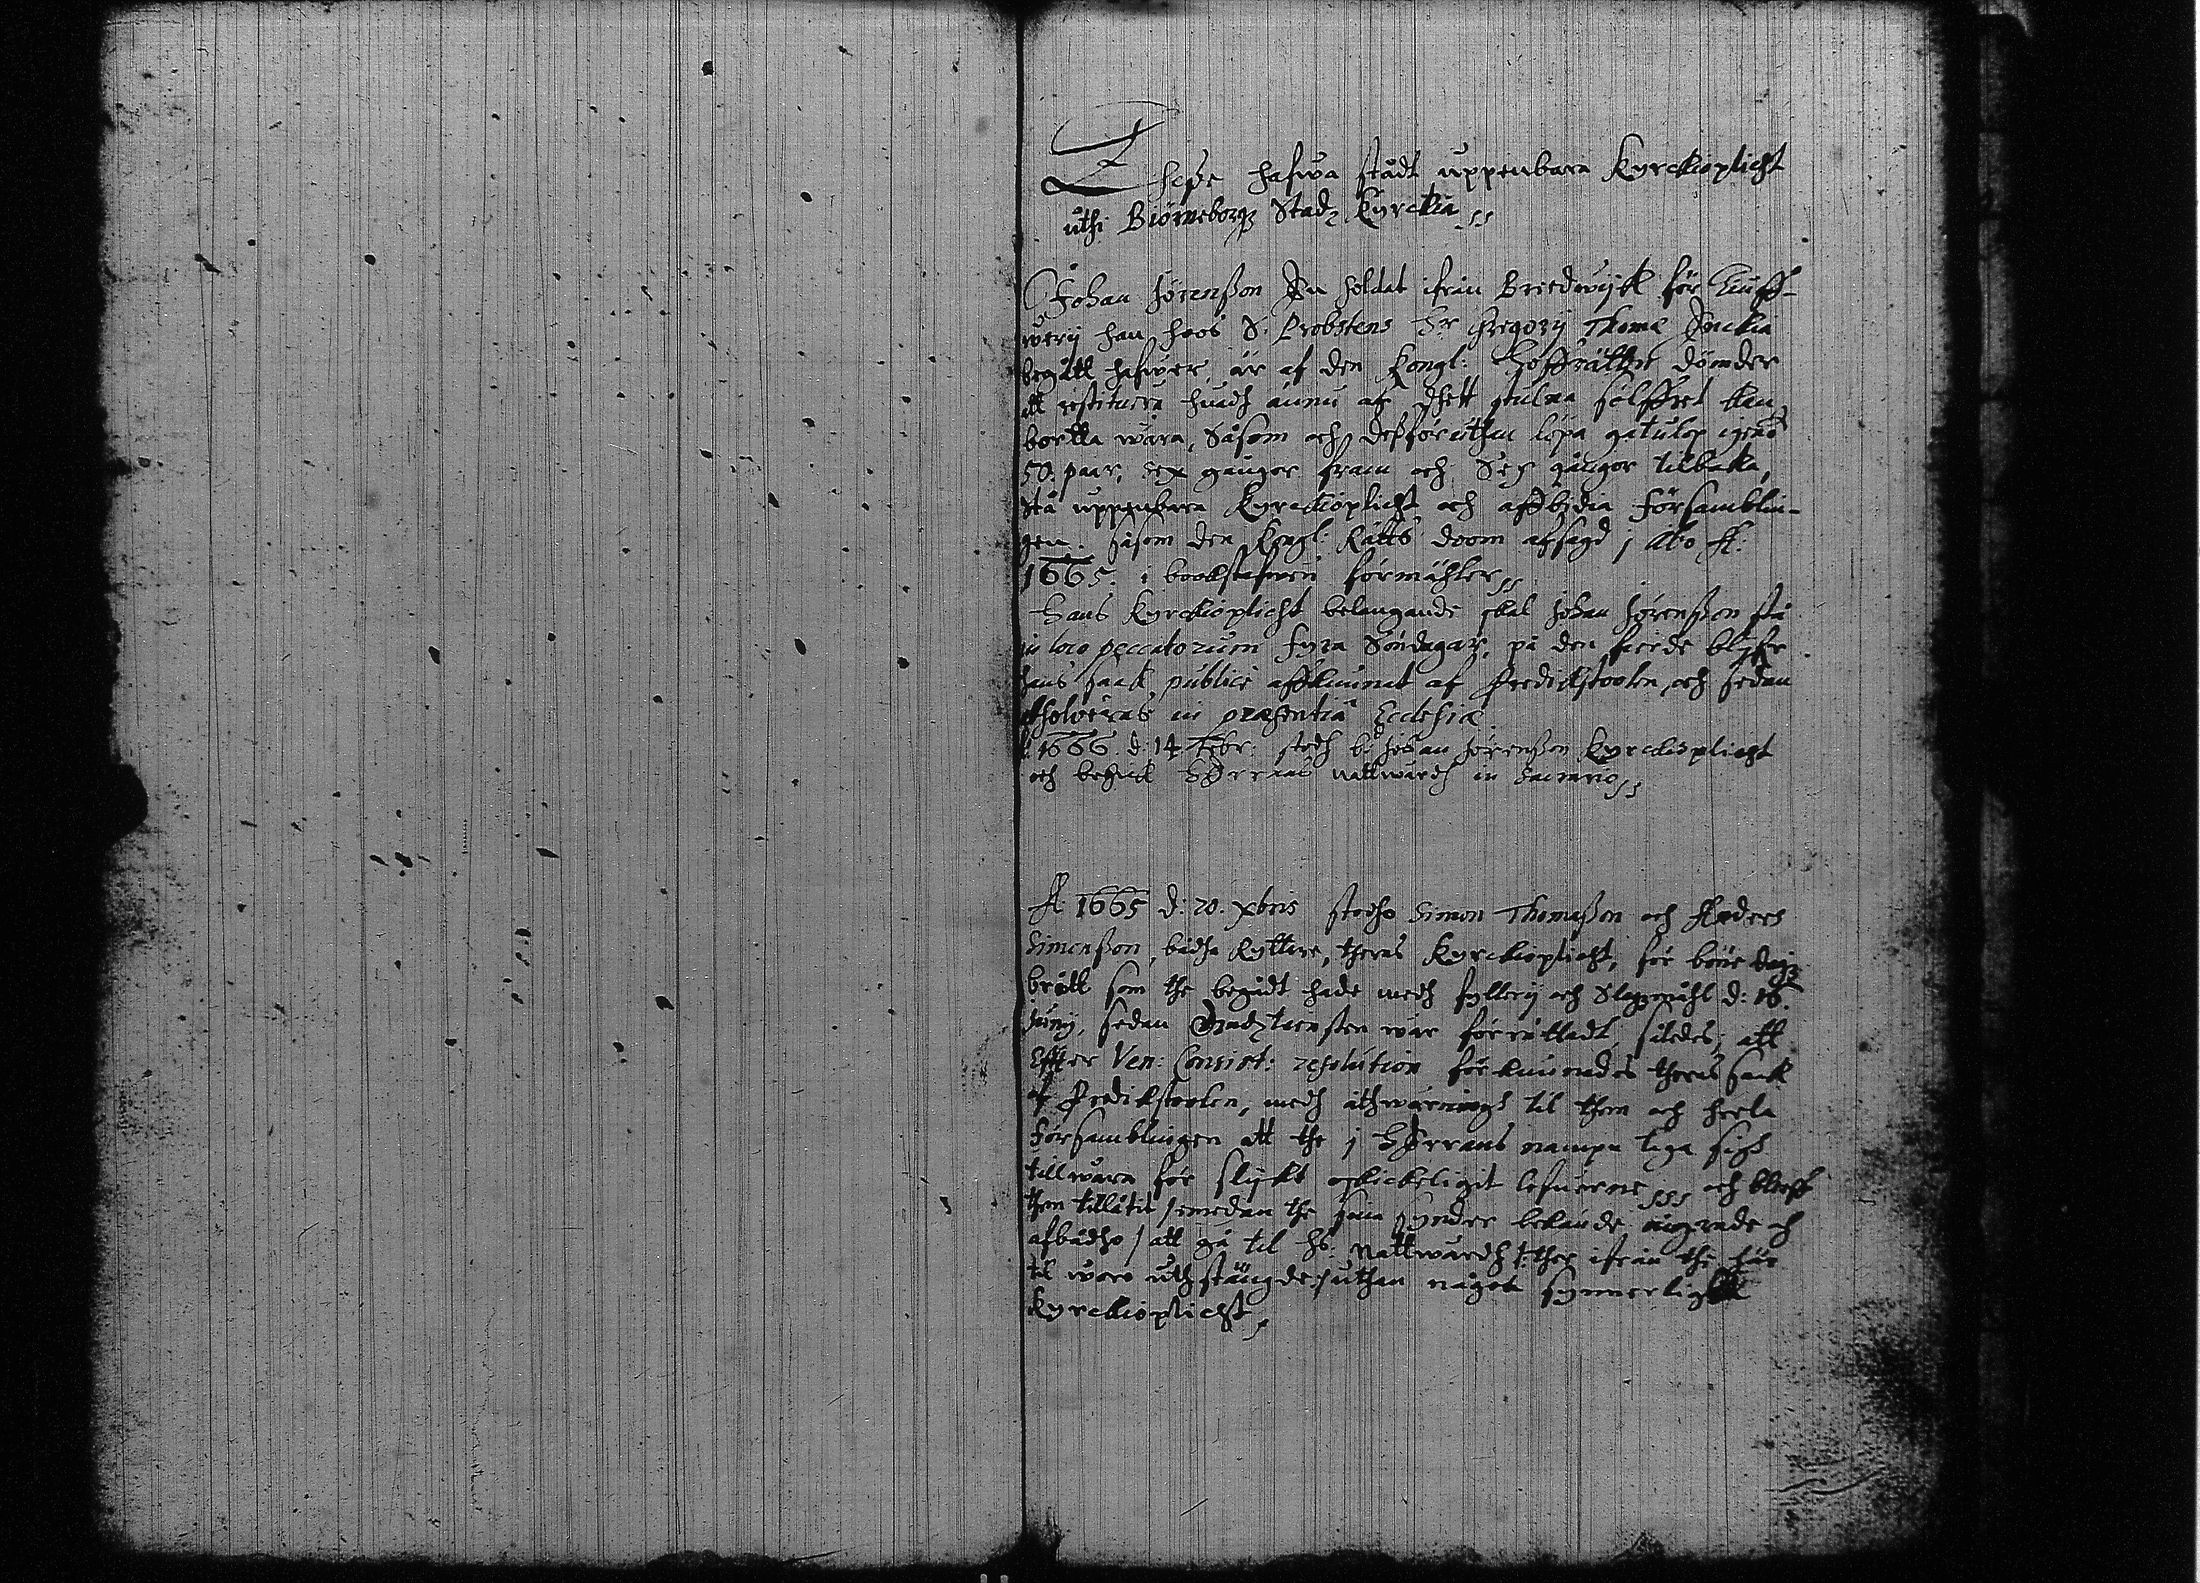 Theße hafwa stådt uppenbara Kyrckioplicht
uthi Biörneborgz Stadz Kyrckia
Johan Jörenßon En soldat ifrån Bredwijk för tiuff-
werij han hoos S. Probstens Hr Gregorij Thomæ Enckia
begått hafwer är af den Kongl: Hoffrätten dömder
att restituera huadh ännu af dhett stulna sölffret kan
bortta wara, Såsom och deßföruthan löpa gatulop igenō
50. paar, sex gånger fram och Sex gånger tilbaka,
stå uppenbara Kyrckioplicht och affbidia Församblin-
gen. såsom den Kongl: Rätts doom afsagd j Åbo A:
1665. i bookstafwen förmähler
Hans Kyrckioplicht belangande skal Johan Jörenßon stå
in loco peccatorum fyra Söndagar, på den fierde blifr
hans saak publicè affkunnat af Predickstoolen, och sedan
absolveras in præsentia Ecclesiæ
A: 1666. d: 14 Febr: stodh bd Johan Jörenßon Kyrckioplicht
och begick HErrans nattwardh in
A: 1665 d: 20. xbris stodho Simon Thomaßon och Anders
Simonßon, bådha Ryttare, theras Kyrckioplicht, för böne dagz
brått som the begådt hade medh fyllerij och Slagzmåhl d: 16.
Junij, sedan Gudztiensten war förrättadt, således, att
Effter Ven: Consist: resolution förkunnades theras saak
af Predickstoolen, medh åthwarningh til them och heela
Församblingen att the j HErrans nampn taga sigh
tillwara för slijkt oskickeligit lefwerne och bleeff
them tillåtit / emedan the sina synder bekände ångrade och
afbådho / att gå til hs: Nattwardh /: ther ifrån the här
til woro uthstängde :/ uthan någon synnerligh
Kyrckioplicht